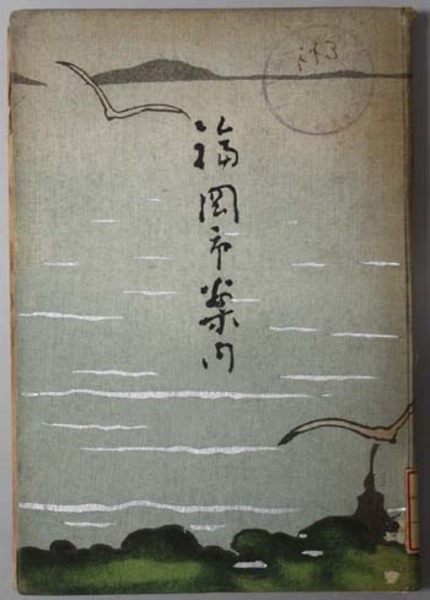 福岡市案内